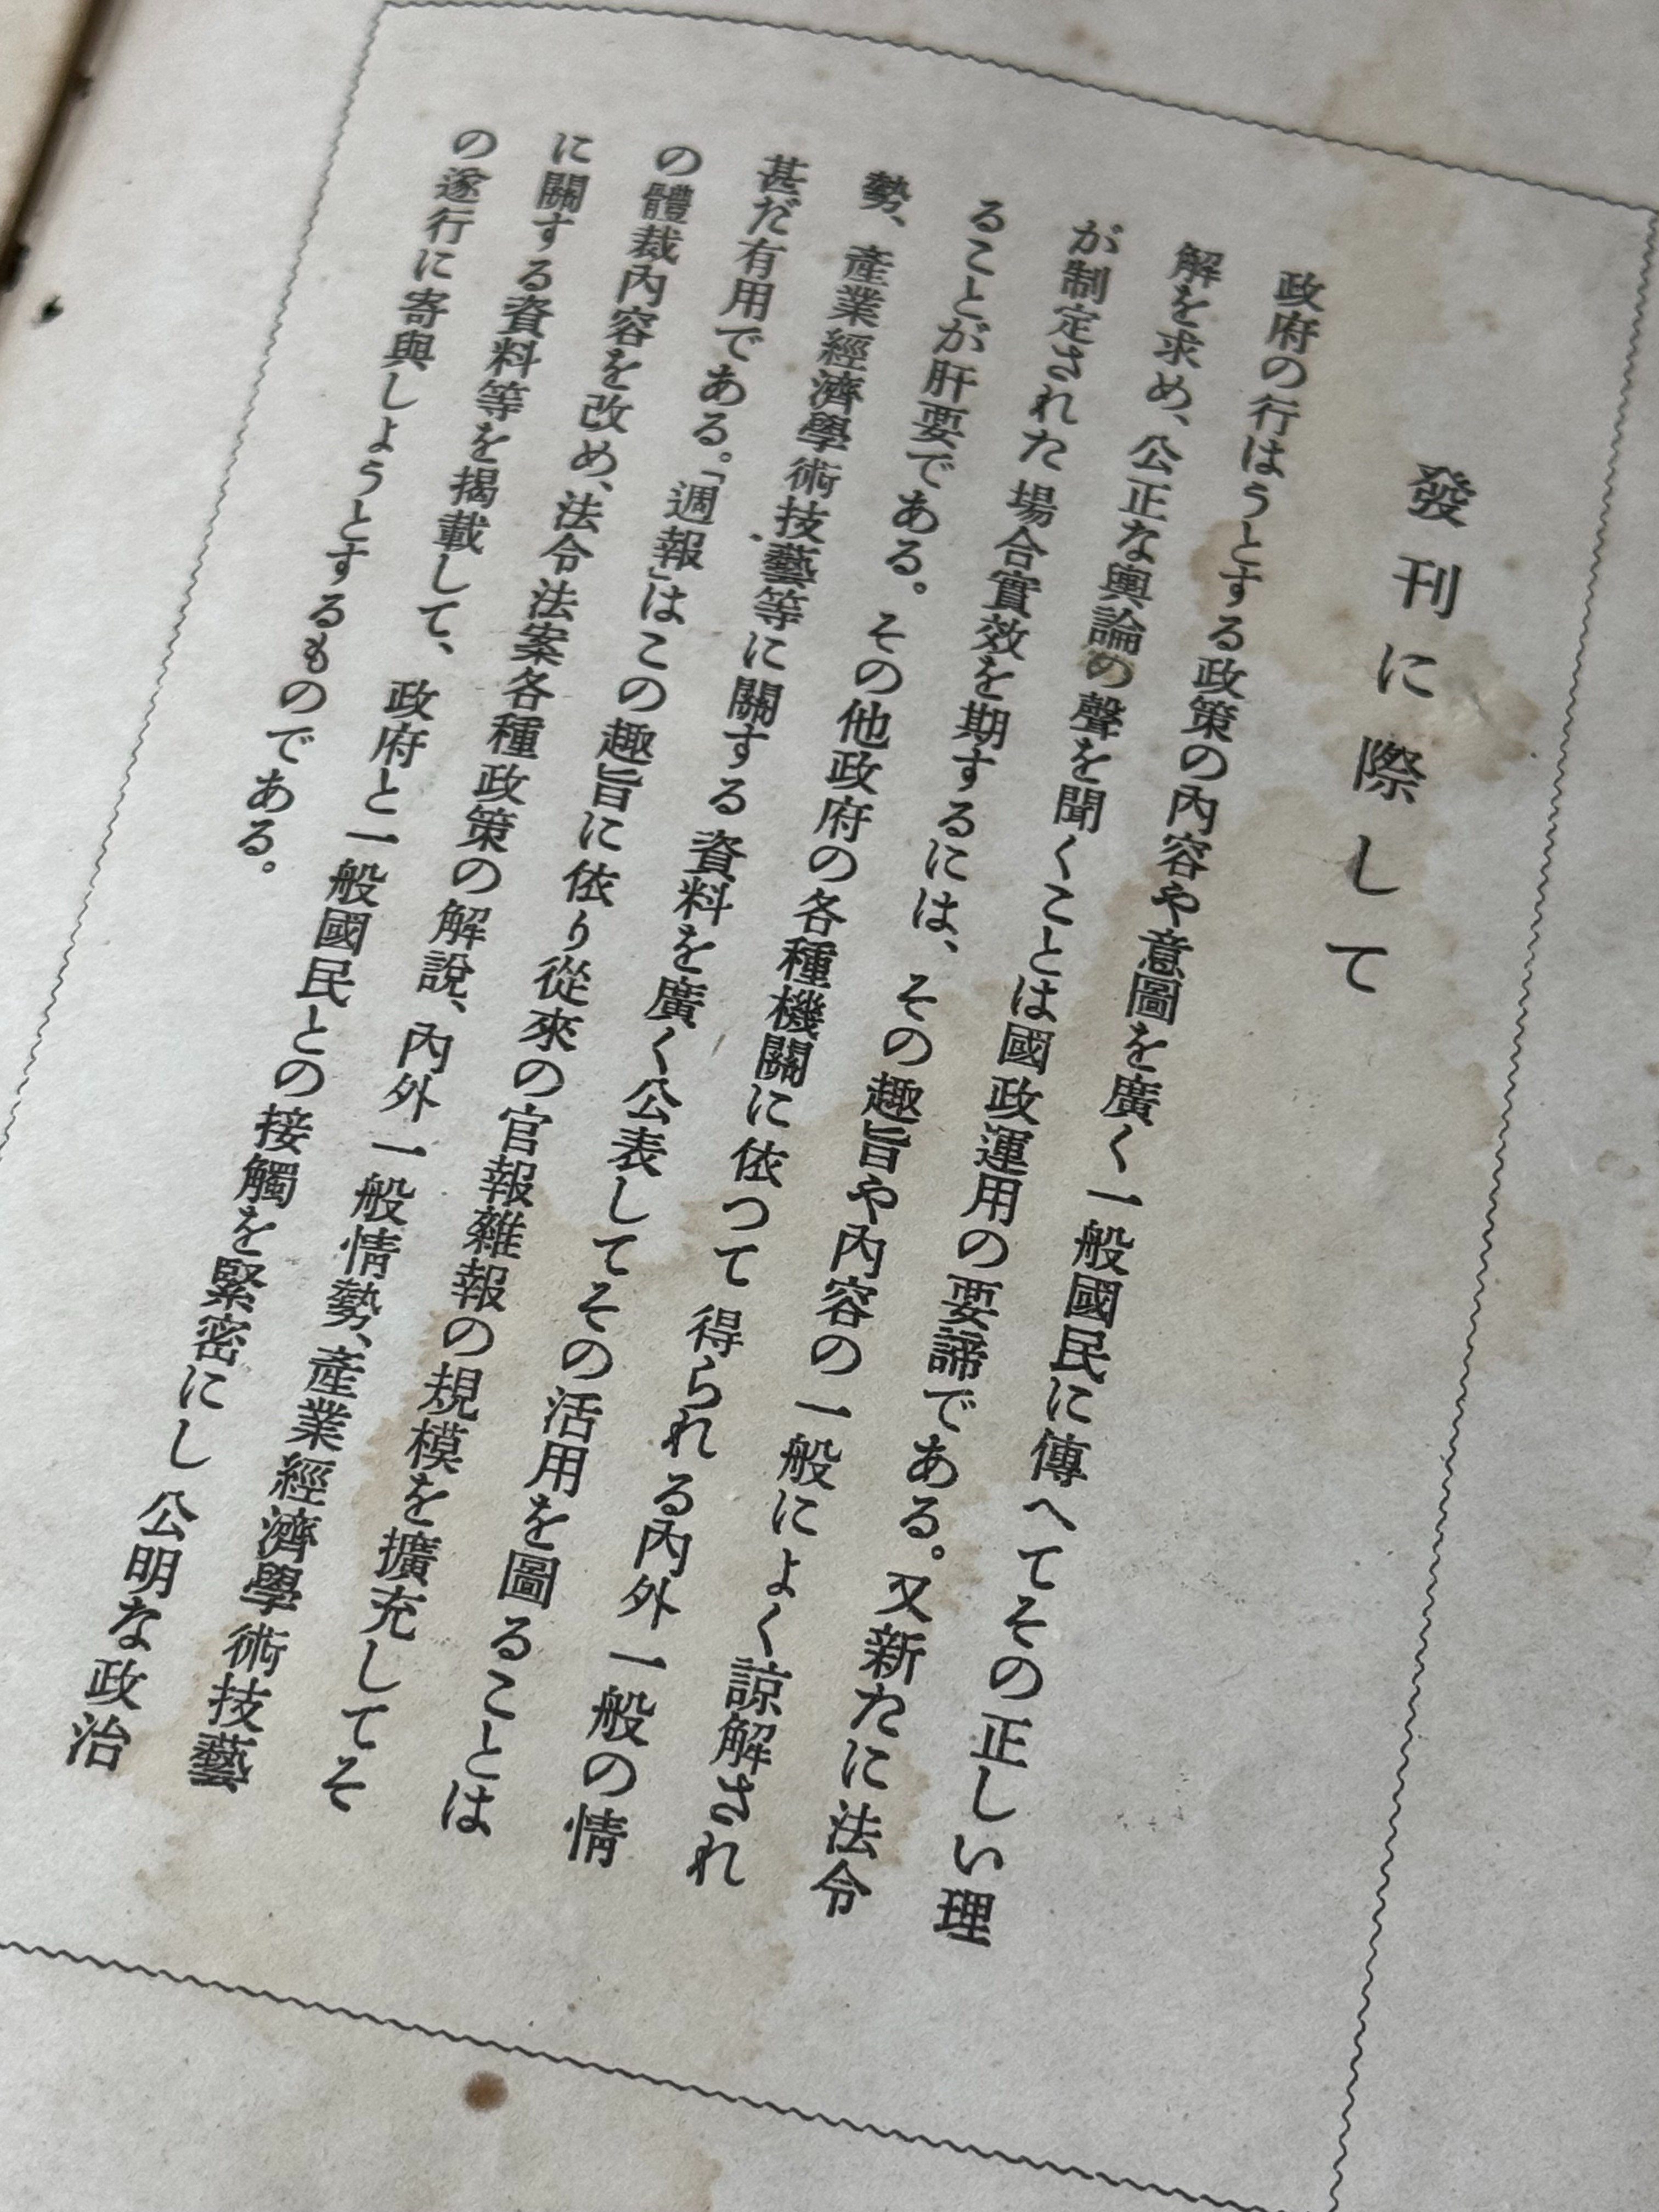 發刊に際して
政府の行はうとする政策の內容や意圖を廣く一般國民に傳へてその正しい理
解を求め、公正な輿論の聲を聞くことは國政運用の要諦である。又新たに法令
が制定された場合實效を期するには、その趣旨や內容の一般によく諒解され
ることが肝要である。その他政府の各種機關に依つて得られる內外一般の情
勢、產業經濟學術技藝等に關する資料を廣く公表してその活用を圖ることは
甚だ有用である。「週報」はこの趣旨に依り從來の官報雜報の規模を擴充してそ
の體裁內容を改め、法令法案各種政策の解說、內外一般情勢、產業經濟學術技藝
に關する資料等を揭載して、政府と一般國民との接觸を緊密にし公明な政治
の遂行に寄與しようとするものである。